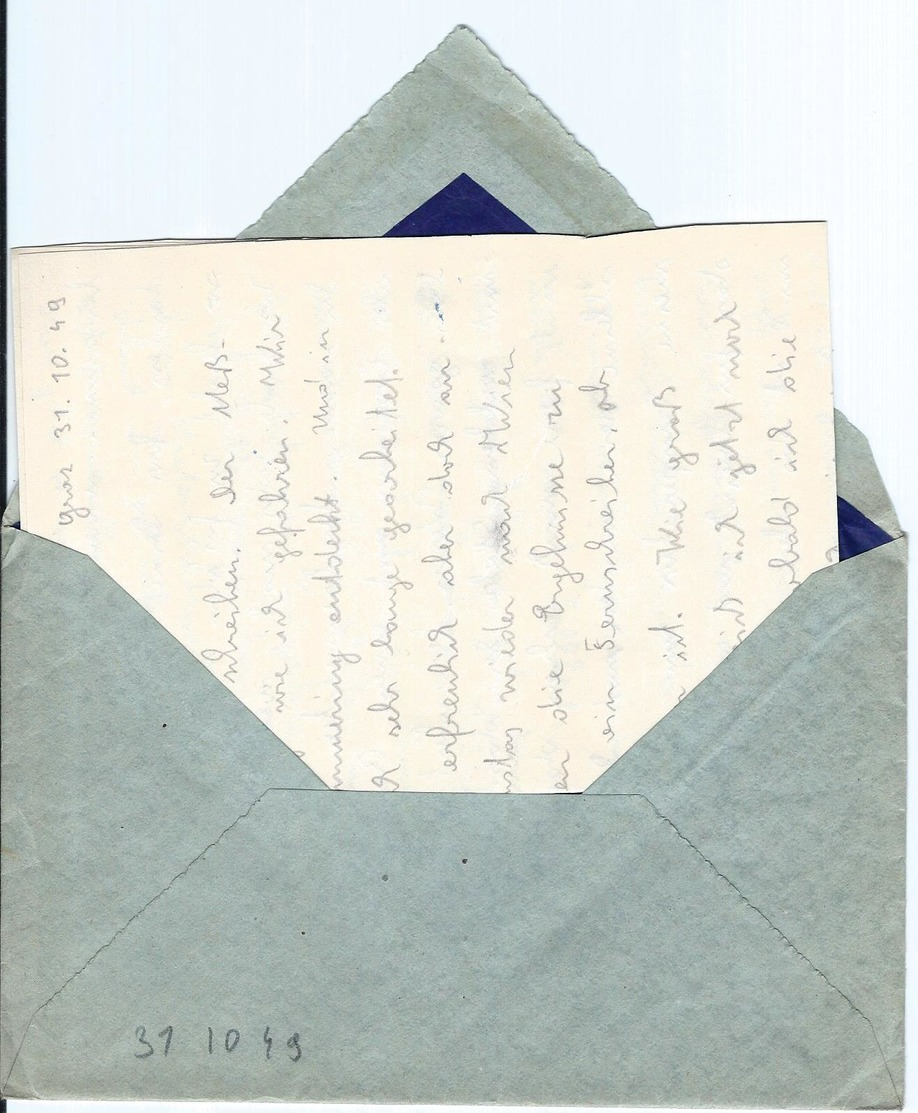 Graz 31. 10. 49
schreiben. Der Meß-
wie ich gefahren. Wir
entdeckt. und in
sehr lange gearbeitet.
erfreulich aber doch an
wieder nach Wien
die Ergebnisse zu
Fernschreiber, ob
ist. Wie groß
ich jetzt nach
bald ich die
31 10 49